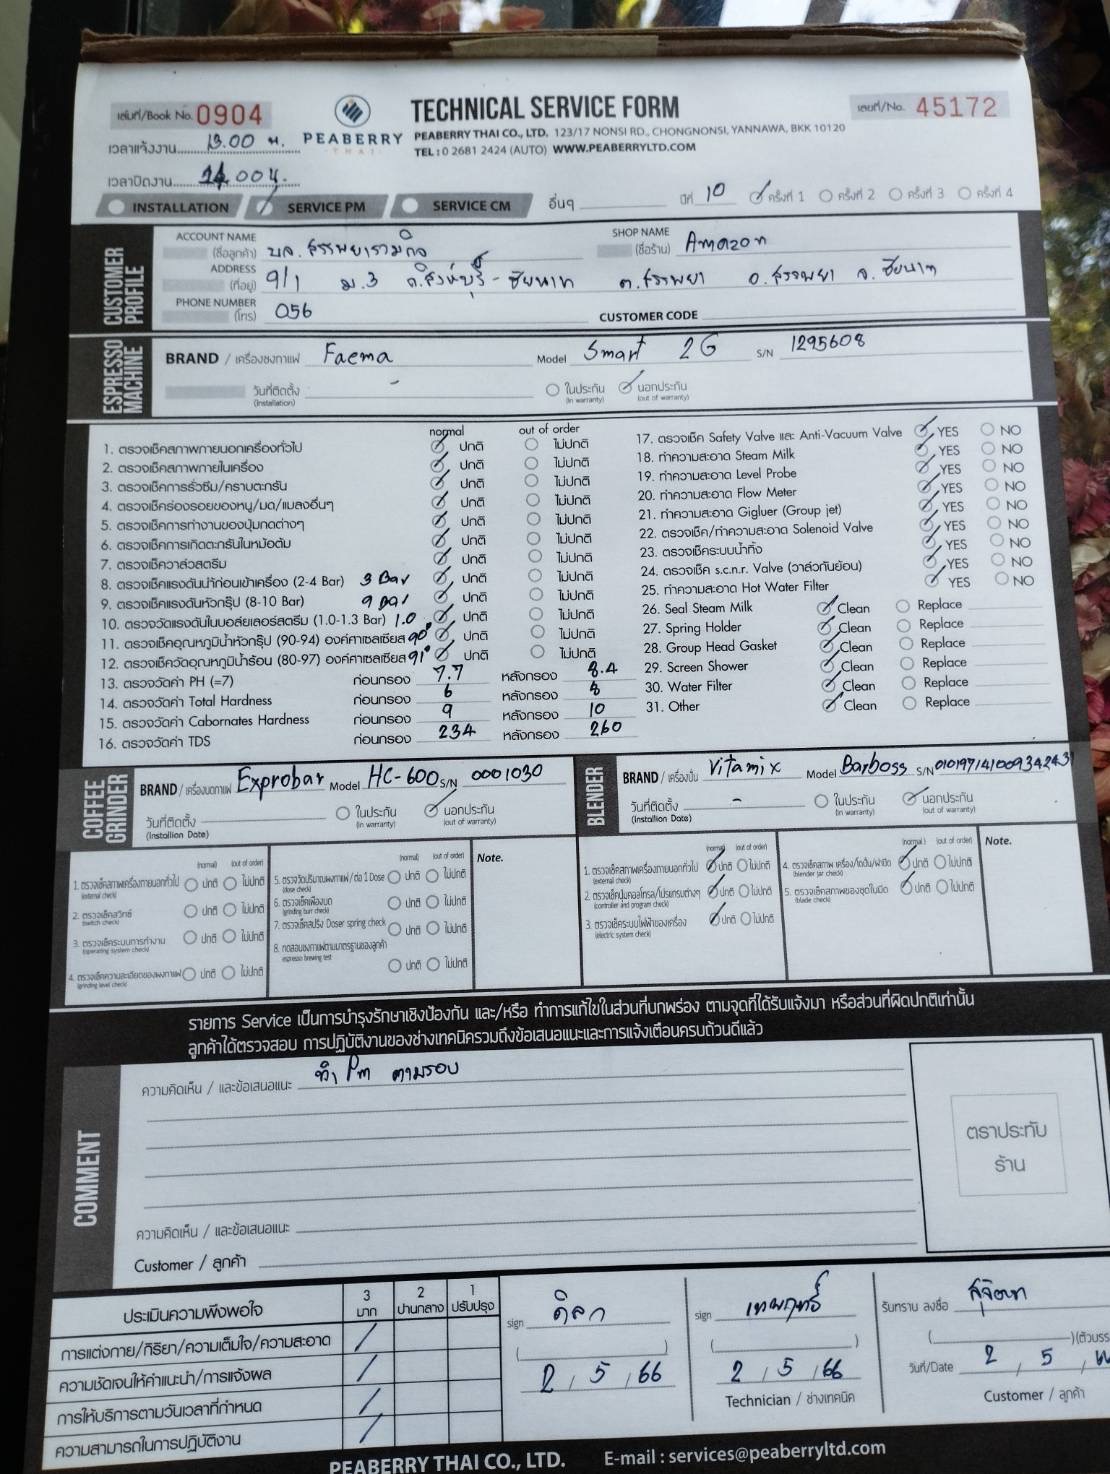 เล่มที่/Book No. 0904
PEABERRY
THAI
TECHNICAL SERVICE FORM
PEABERRY THAI CO., LTD. 123/17 NONSI RD., CHONGNONSI, YANNAWA, BKK 10120
TEL : 0 2681 2424 (AUTO) WWW.PEABERRYLTD.COM
เลขที่/No. 45172
เวลาแจ้งงาน 13.00 น.
เวลาปิดงาน 14.00 น.
INSTALLATION SERVICE PM SERVICE CM อื่นๆ ปีที่ 10 ครั้งที่ 1 ครั้งที่ 2 ครั้งที่ 3 ครั้งที่ 4
CUSTOMER PROFILE
ACCOUNT NAME (ชื่อลูกค้า) บจ. สรรพยารวมกิจ SHOP NAME (ชื่อร้าน) Amazon
ADDRESS (ที่อยู่) 9/1 ม.3 ถ.สิงห์บุรี - ชัยนาท ต.สรรพยา อ.สรรพยา จ.ชัยนาท
PHONE NUMBER (โทร) 056 CUSTOMER CODE
ESPRESSO MACHINE
BRAND / เครื่องชงกาแฟ Faema Model Smart 2G S/N 1295608
วันที่ติดตั้ง (Installation) - ในประกัน (in warranty) นอกประกัน (out of warranty)
normal out of order
1. ตรวจเช็คสภาพภายนอกเครื่องทั่วไป ปกติ ไม่ปกติ
2. ตรวจเช็คสภาพภายในเครื่อง ปกติ ไม่ปกติ
3. ตรวจเช็คการรั่วซึม/คราบตะกรัน ปกติ ไม่ปกติ
4. ตรวจเช็คร่องรอยของหนู/มด/แมลงอื่นๆ ปกติ ไม่ปกติ
5. ตรวจเช็คการทำงานของปุ่มกดต่างๆ ปกติ ไม่ปกติ
6. ตรวจเช็คการเกิดตะกรันในหม้อต้ม ปกติ ไม่ปกติ
7. ตรวจเช็ควาล์วสตรีม ปกติ ไม่ปกติ
8. ตรวจเช็คแรงดันน้ำก่อนเข้าเครื่อง (2-4 Bar) 3 Bar ปกติ ไม่ปกติ
9. ตรวจเช็คแรงดันหัวกรุ๊ป (8-10 Bar) 9 Bar ปกติ ไม่ปกติ
10. ตรวจวัดแรงดันในบอล์ยเลอร์สตรีม (1.0-1.3 Bar) 1.0 ปกติ ไม่ปกติ
11. ตรวจเช็คอุณหภูมิน้ำหัวกรุ๊ป (90-94) องศาเซลเซียส 90° ปกติ ไม่ปกติ
12. ตรวจเช็ควัดอุณหภูมิน้ำร้อน (80-97) องศาเซลเซียส 91° ปกติ ไม่ปกติ
13. ตรวจวัดค่า PH (=7) ก่อนกรอง 7.7 หลังกรอง 8.4
14. ตรวจวัดค่า Total Hardness ก่อนกรอง 6 หลังกรอง 8
15. ตรวจวัดค่า Cabornates Hardness ก่อนกรอง 9 หลังกรอง 10
16. ตรวจวัดค่า TDS ก่อนกรอง 234 หลังกรอง 260
17. ตรวจเช็ค Safety Valve และ Anti-Vacuum Valve YES NO
18. ทำความสะอาด Steam Milk YES NO
19. ทำความสะอาด Level Probe YES NO
20. ทำความสะอาด Flow Meter YES NO
21. ทำความสะอาด Gigluer (Group jet) YES NO
22. ตรวจเช็ค/ทำความสะอาด Solenoid Valve YES NO
23. ตรวจเช็คระบบน้ำทิ้ง YES NO
24. ตรวจเช็ค s.c.n.r. Valve (วาล์วกันย้อน) YES NO
25. ทำความสะอาด Hot Water Filter YES NO
26. Seal Steam Milk Clean Replace
27. Spring Holder Clean Replace
28. Group Head Gasket Clean Replace
29. Screen Shower Clean Replace
30. Water Filter Clean Replace
31. Other Clean Replace
COFFEE GRINDER
BRAND / เครื่องบดกาแฟ Exprobar Model HC-600 S/N 0001030
วันที่ติดตั้ง (Installion Date) ในประกัน (in warranty) นอกประกัน (out of warranty)
BLENDER
BRAND / เครื่องปั่น Vitamix Model Barboss S/N 010197141009342431
วันที่ติดตั้ง (Installion Date) - ในประกัน (in warranty) นอกประกัน (out of warranty)
(normal) (out of order) (normal) (out of order) Note.
1. ตรวจเช็คสภาพเครื่องภายนอกทั่วไป (external check) ปกติ ไม่ปกติ
2. ตรวจเช็คสวิทช์ (switch check) ปกติ ไม่ปกติ
3. ตรวจเช็คระบบการทำงาน (operating system check) ปกติ ไม่ปกติ
4. ตรวจเช็คความละเอียดของผงกาแฟ (grinding level check) ปกติ ไม่ปกติ
5. ตรวจวัดปริมาณผงกาแฟ / ต่อ 1 Dose (dose check) ปกติ ไม่ปกติ
6. ตรวจเช็คเฟืองบด (grinding burr check) ปกติ ไม่ปกติ
7. ตรวจเช็คสปริง Doser spring check ปกติ ไม่ปกติ
8. ทดสอบชงกาแฟตามมาตรฐานของลูกค้า espresso brewing test ปกติ ไม่ปกติ
(normal) (out of order) (normal) (out of order) Note.
1. ตรวจเช็คสภาพเครื่องภายนอกทั่วไป (external check) ปกติ ไม่ปกติ
2. ตรวจเช็คปุ่มคอลโทรล/โปรแกรมต่างๆ (controller and program check) ปกติ ไม่ปกติ
3. ตรวจเช็คระบบไฟฟ้าของเครื่อง (electric system check) ปกติ ไม่ปกติ
4. ตรวจเช็คสภาพ เครื่อง/โถปั่น/ฝาปิด (blender jar check) ปกติ ไม่ปกติ
5. ตรวจเช็คสภาพของชุดใบมีด (blade check) ปกติ ไม่ปกติ
รายการ Service เป็นการบำรุงรักษาเชิงป้องกัน และ/หรือ ทำการแก้ไขในส่วนที่บกพร่อง ตามจุดที่ได้รับแจ้งมา หรือส่วนที่ผิดปกติเท่านั้น
ลูกค้าได้ตรวจสอบ การปฏิบัติงานของช่างเทคนิครวมถึงข้อเสนอแนะและการแจ้งเตือนครบถ้วนดีแล้ว
COMMENT
ความคิดเห็น / และข้อเสนอแนะ ทำ Pm ตามรอบ
ตราประทับ
ร้าน
ความคิดเห็น / และข้อเสนอแนะ
Customer / ลูกค้า
ประเมินความพึงพอใจ 3 มาก 2 ปานกลาง 1 ปรับปรุง
การแต่งกาย/กิริยา/ความเต็มใจ/ความสะอาด /
ความชัดเจนให้คำแนะนำ/การแจ้งผล /
การให้บริการตามวันเวลาที่กำหนด /
ความสามารถในการปฏิบัติงาน /
sign ดิลก
( )
2 / 5 / 66
sign เทพฤทธิ์
( )
2 / 5 / 66
Technician / ช่างเทคนิค
รับทราบ ลงชื่อ
( ) (ตัวบรร
วันที่/Date 2 / 5 /
Customer / ลูกค้า
PEABERRY THAI CO., LTD. E-mail : services@peaberryltd.com